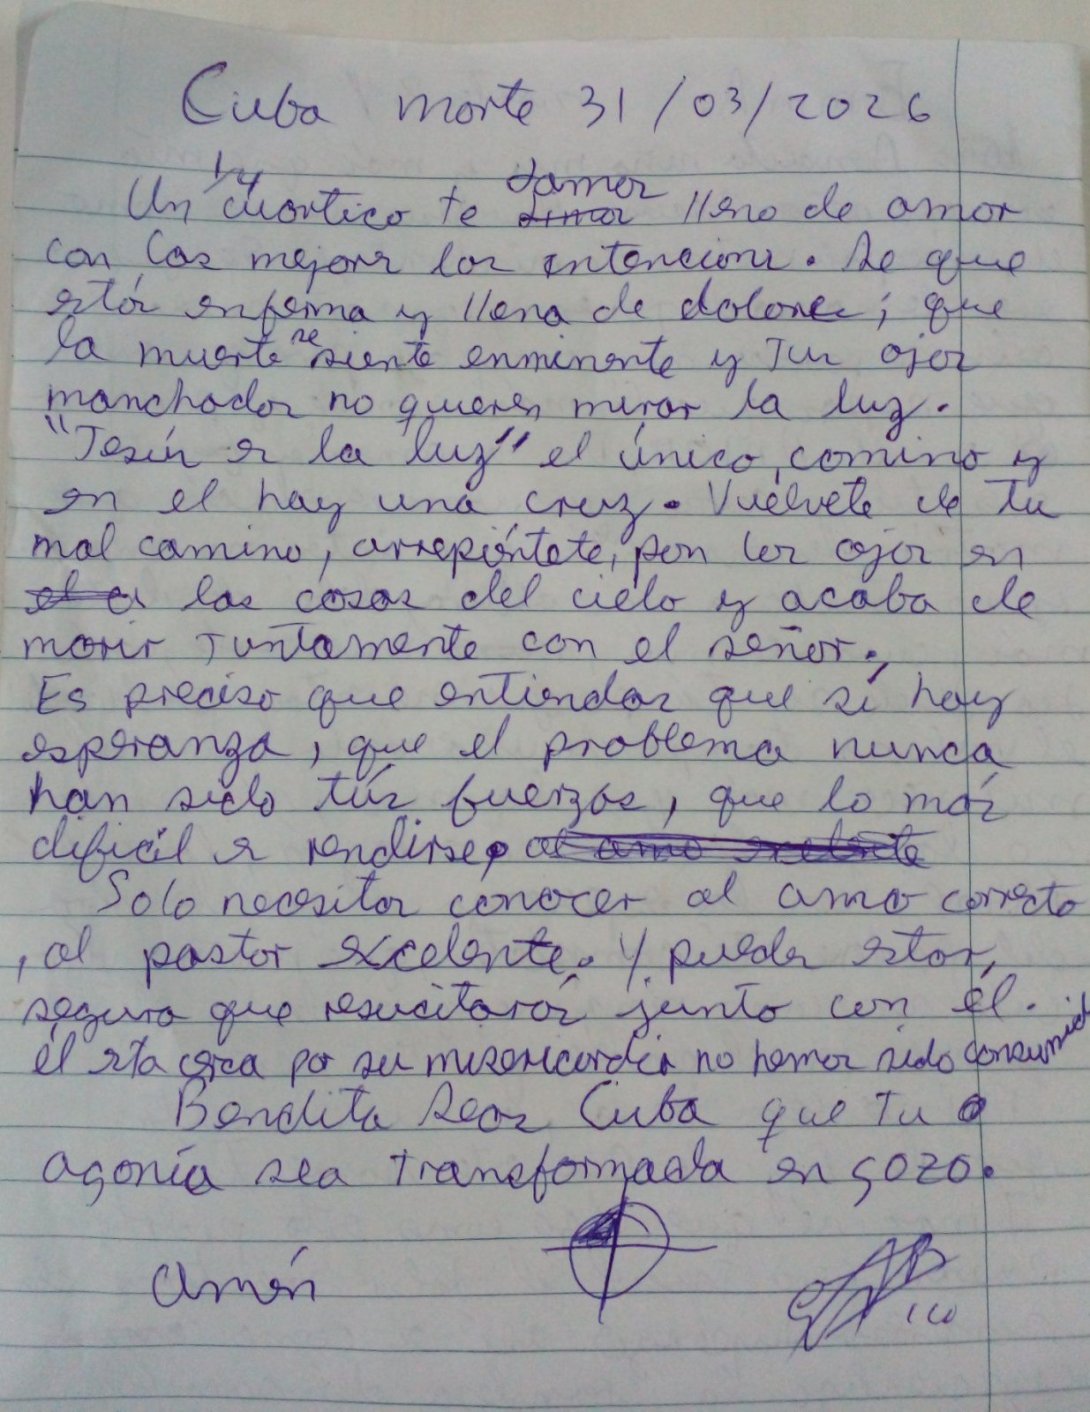 Cuba morte 31/03/2026
1/4
Un cuartico te damos lleno de amor
con las mejores las intenciones. Se que
estás enferma y llena de dolores; que
la muerte se siente enminente y Tus ojos
manchados no quieren mirar la luz.
"Jesús es la luz" el único camino y
en el hay una cruz. Vuélvete de Tu
mal camino, arrepiéntete, pon los ojos en
las cosas del cielo y acaba de
morir Juntamente con el señor.
Es preciso que entiendas que sí hay
esperanza, que el problema nunca
han sido tús fuerzas, que lo más
dificil es rendirse,
Solo necesitas conocer al amo correcto
, al pastor excelente. Y puedes estar,
segura que resucitarás junto con él.
él esta cerca por su misericordia no hemos sido consumid
Bendita Seas Cuba que Tu
agonía sea transformada en gozo.
Amén